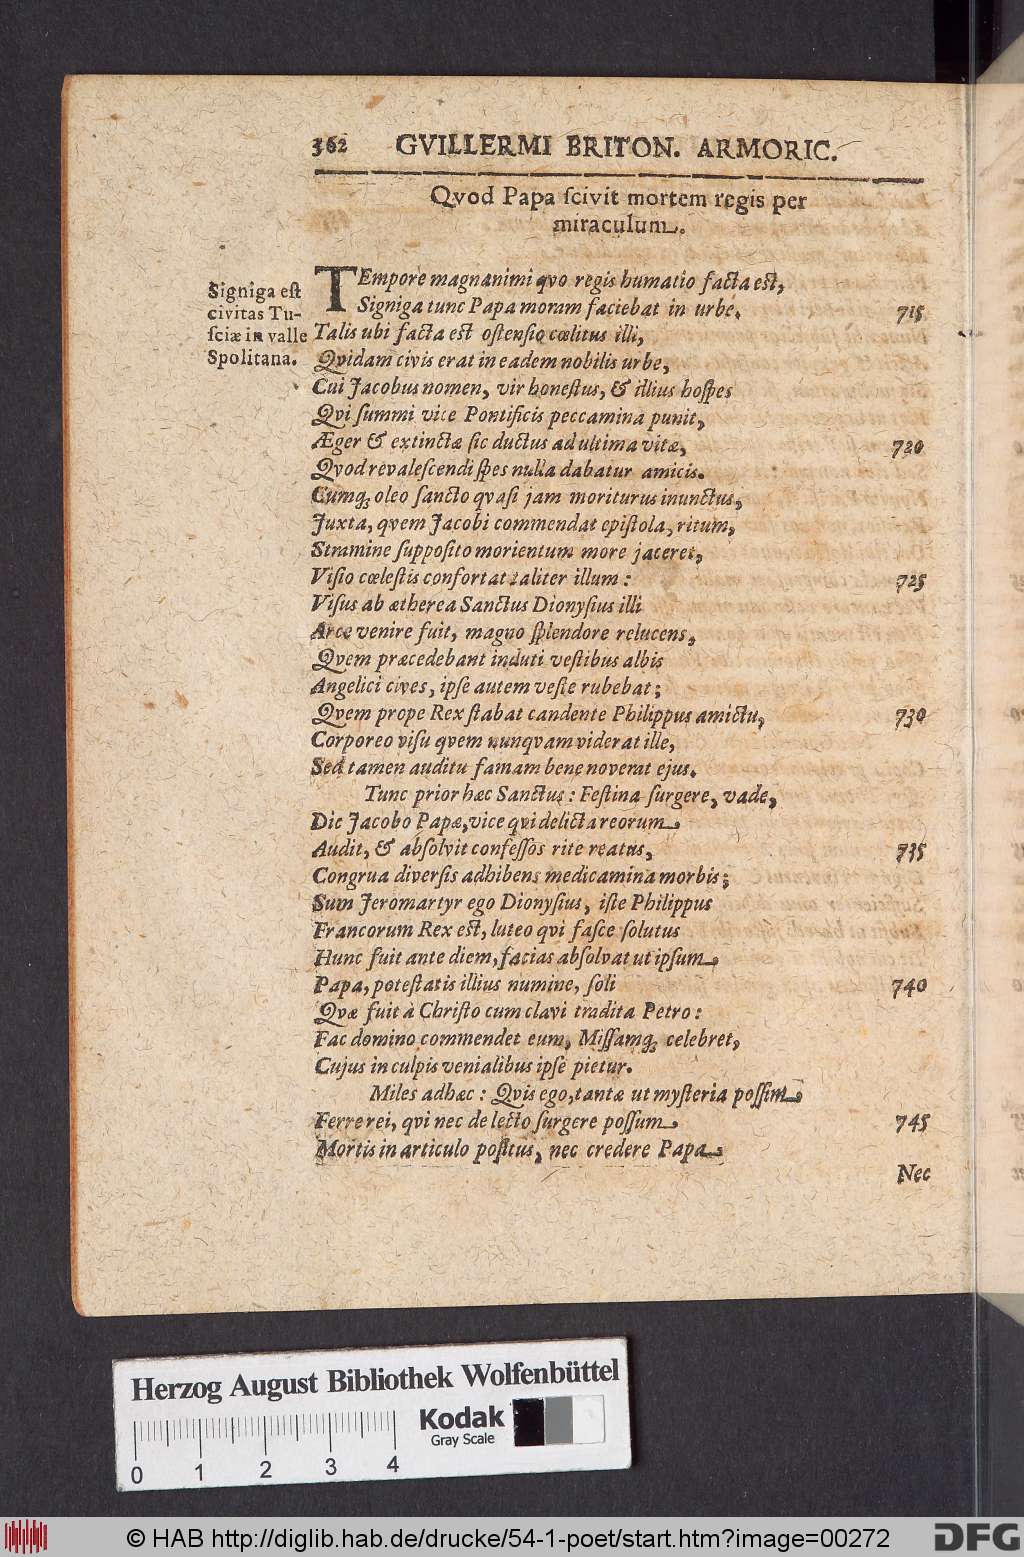 362 GVILLERMI BRITON. ARMORIC.
Qvod Papa ſcivit mortem regis per
miraculum.
Signiga eſt
civitas Tu-
ſciæ in valle
Spolitana.
TEmpore magnanimi qvo regis humatio facta eſt,
Signiga tunc Papa moram faciebat in urbe, 715
Talis ubi facta eſt oſtenſio cœlitus illi,
Qvidam civis erat in eadem nobilis urbe,
Cui Jacobus nomen, vir honeſtus, & illius hoſpes
Qvi ſummi vice Pontificis peccamina punit,
Æger & extinctæ ſic ductus ad ultima vitæ, 720
Qvod revaleſcendi ſpes nulla dabatur amicis.
Cumq; oleo ſancto qvaſi jam moriturus inunctus,
Juxta, qvem Jacobi commendat epiſtola, ritum,
Stramine ſuppoſito morientum more jaceret,
Viſio cœleſtis confortat taliter illum: 725
Viſus ab ætherea Sanctus Dionyſius illi
Arce venire fuit, magno ſplendore relucens,
Qvem præcedebant induti veſtibus albis
Angelici cives, ipſe autem veſte rubebat;
Qvem prope Rex ſtabat candente Philippus amictu, 730
Corporeo viſu qvem nunqvam viderat ille,
Sed tamen auditu famam bene noverat ejus.
Tunc prior hæc Sanctus: Feſtina ſurgere, vade,
Dic Jacobo Papæ, vice qvi delicta reorum
Audit, & abſolvit confeſſos rite reatus, 735
Congrua diverſis adhibens medicamina morbis;
Sum Jeromartyr ego Dionyſius, iſte Philippus
Francorum Rex eſt, luteo qvi faſce ſolutus
Hunc fuit ante diem, facias abſolvat ut ipſum
Papa, poteſtatis illius numine, ſoli 740
Qvæ fuit à Chriſto cum clavi tradita Petro:
Fac domino commendet eum, Miſſamq; celebret,
Cujus in culpis venialibus ipſe pietur.
Miles ad hæc: Qvis ego, tantæ ut myſteria poſſim
Ferre rei, qvi nec de lecto ſurgere poſſum 745
Mortis in articulo poſitus, nec credere Papa
Nec
Herzog August Bibliothek Wolfenbüttel
Kodak
Gray Scale
0 1 2 3 4
© HAB http://diglib.hab.de/drucke/54-1-poet/start.htm?image=00272
DFG